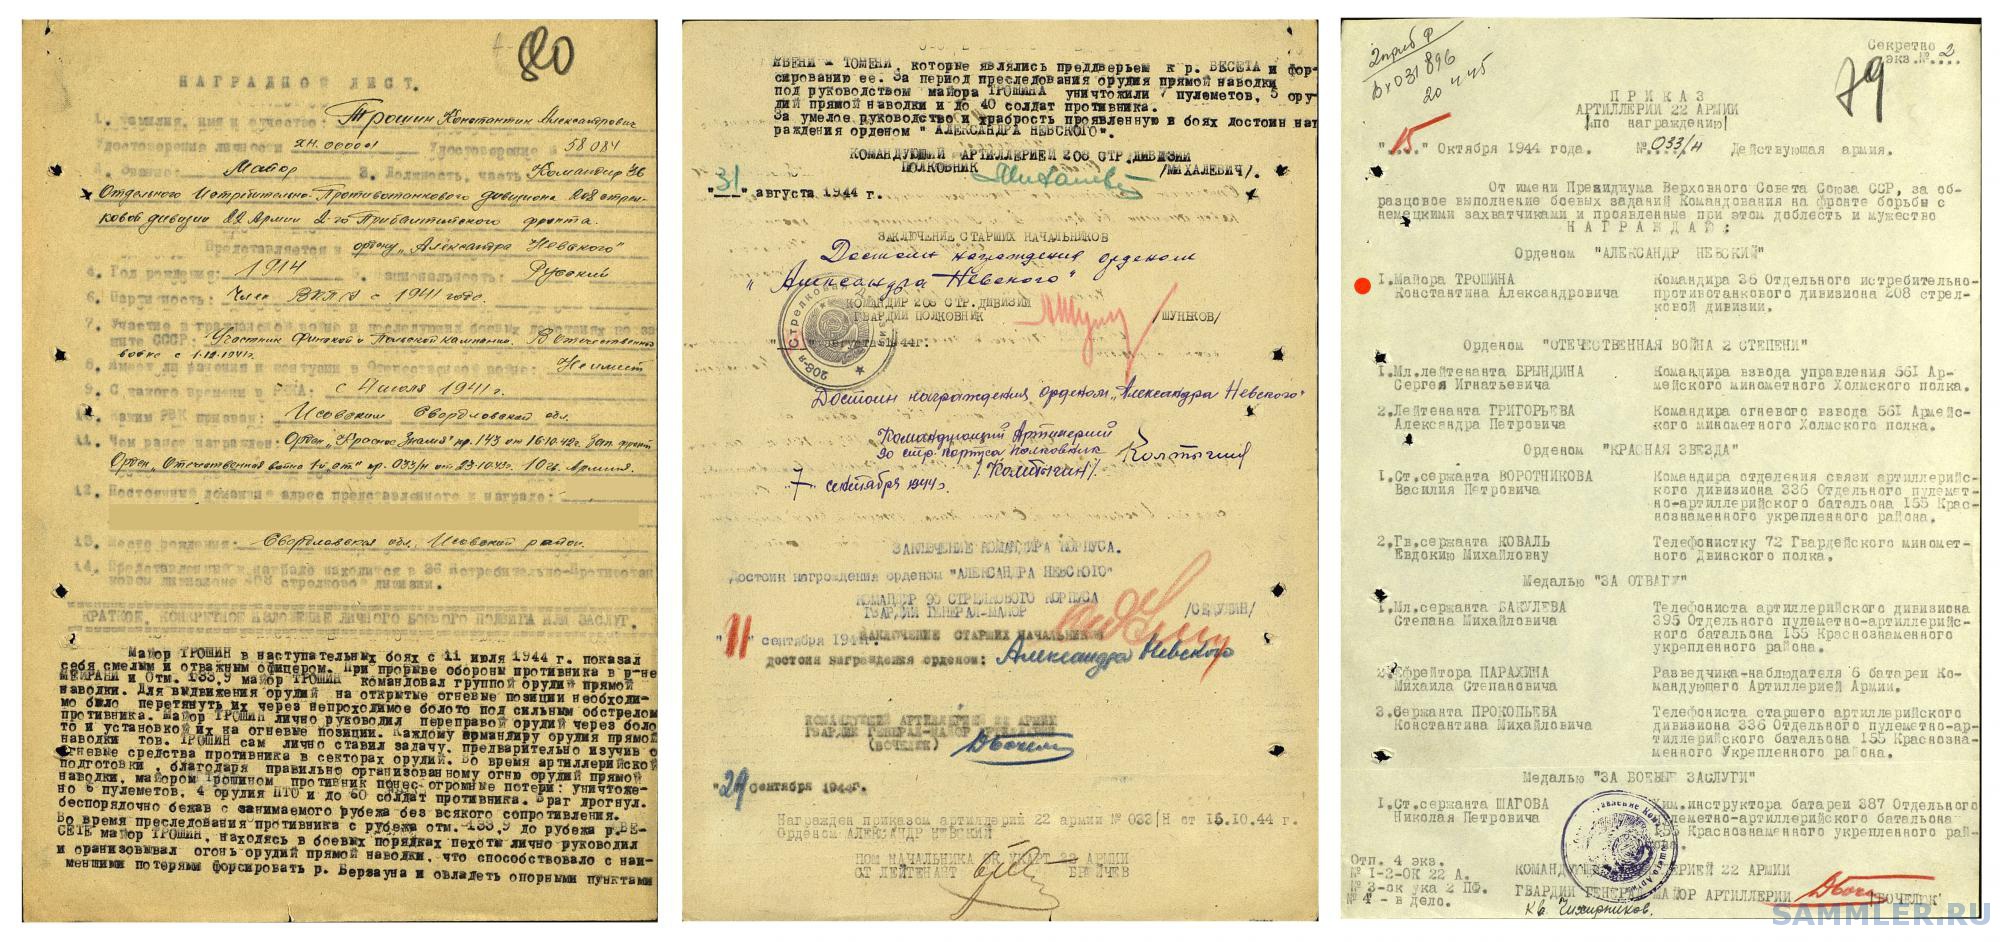 820
НАГРАДНОЙ ЛИСТ.
1. Фамилия, имя и отчество: Трошин Константин Александрович
Удостоверения личности ХН.00001 Удостоверение № 58084
2. Звание: Майор 3. Должность, часть Командир 36
Отдельного Истребительно-Противотанкового дивизиона 208 стрел-
ковой дивизии 22 Армии 2-го Прибалтийского фронта.
Представляется к ордену „Александра Невского"
4. Год рождения: 1914 5. Национальность: Русский
6. Партийность: Член ВКП/б с 1941 года.
7. Участие в гражданской войне и последующих боевых действиях по за-
щите СССР: Участник Финской и Польской кампании. В Отечественной
войне с 1.10.1941г.
8. Имеет ли ранения и контузии в Отечественной войне: Не имеет
9. С какого времени в РККА: с 4 июля 1941 г.
10. Каким РВК призван: Исовским Свердловской обл.
11. Чем ранее награжден: Орден „Красное Знамя" пр. 143 от 16.10.42г. Зап. фронт
Орден „Отечественная война 1й ст" пр. 033/н от 23.10.43г. 10 гв. Армия.
12. Постоянный домашний адрес представленного к награде:
13. Место рождения: Свердловская обл., Исовский район.
14. Представленный к награде находится в 36 Истребительно-Противотан-
ковом дивизионе 208 стрелковой дивизии.
КРАТКОЕ, КОНКРЕТНОЕ ИЗЛОЖЕНИЕ ЛИЧНОГО БОЕВОГО ПОДВИГА ИЛИ ЗАСЛУГ.
Майор ТРОШИН в наступательных боях с 11 июля 1944 г. показал
себя смелым и отважным офицером. При прорыве обороны противника в р-не
МЕЙРАНИ и Отм. 133,9 майор ТРОШИН командовал группой орудий прямой
наводки. Для выдвижения орудий на открытые огневые позиции необходи-
мо было перетянуть их через непроходимое болото под сильным обстрелом
противника. Майор ТРОШИН лично руководил переправой орудий через боло-
то и установкой их на огневые позиции. Каждому командиру орудия прямой
наводки тов. ТРОШИН сам лично ставил задачу, предварительно изучив о
огневые средства противника в секторах орудий. Во время артиллерийской
подготовки, благодаря правильно организованному огню орудий прямой
наводки, майором Трошином противник понес огромные потери: уничтоже-
но 6 пулеметов, 4 орудия ПТО и до 60 солдат противника. Враг дрогнул,
беспорядочно бежав с занимаемого рубежа без всякого сопротивления.
Во время преследования противника с рубежа отм. 133,9 до рубежа р. ВЕ-
СЕТЕ майор ТРОШИН, находясь в боевых порядках пехоты лично руководил
и оранизовывал огонь орудий прямой наводки, что способствовало с наи-
меншими потерями форсировать р. Берзауна и овладеть опорными пунктами
ЯВЕНИ - ТОМЕНИ, которые являлись преддверьем к р. ВЕСЕТА и фор-
сированию ее. За период преследования орудия прямой наводки
под руководством майора ТРОШИНА уничтожили 7 пулеметов, 5 ору-
дий прямой наводки и до 40 солдат противника.
За умелое руководство и храбрость проявленную в боях достоин наг
раждения орденом " АЛЕКСАНДРА НЕВСКОГО".
КОМАНДУЮЩИЙ АРТИЛЛЕРИЕЙ 208 СТР. ДИВИЗИИ
ПОЛКОВНИК /МИХАЛЕВИЧ/.
"31" августа 1944 г.
ЗАКЛЮЧЕНИЕ СТАРШИХ НАЧАЛЬНИКОВ
Достоин награждения орденом
„Александра Невского"
КОМАНДИР 208 СТР. ДИВИЗИИ
ГВАРДИИ ПОЛКОВНИК /ШУНЬКОВ/
" " августа 1944г.
Достоин награждения орденом „Александра Невского"
Командующий Артиллерией
90 стр. корпуса полковник
/Колтыгин/.
„7" сентября 1944г.
ЗАКЛЮЧЕНИЕ КОМАНДИРА КОРПУСА.
Достоин награждения орденом "АЛЕКСАНДРА НЕВСКОГО"
КОМАНДИР 90 СТРЕЛКОВОГО КОРПУСА
ГВАРДИИ ГЕНЕРАЛ-МАЙОР /СЕДУЛИН/
"11" сентября 1944г.
ЗАКЛЮЧЕНИЕ СТАРШИХ НАЧАЛЬНИКОВ
достоин награждения орденом: Александра Невского
КОМАНДУЮЩИЙ АРТИЛЛЕРИЕЙ 22 АРМИИ
ГВАРДИИ ГЕНЕРАЛ-МАЙОР АРТИЛЛЕРИИ
(БОЧЕЛЮК)
"29 Сентября 1944г.
Награжден приказом артиллерий 22 армии № 033/Н от 15.10.44 г.
Орденом АЛЕКСАНДР НЕВСКИЙ
ПОМ НАЧАЛЬНИКА ОК УКАРТ 22 АРМИИ
СТ ЛЕЙТЕНАНТ БРЯЙЧЕВ
Вх 031896
20 4 45
Секретно
экз.№ 2
79
ПРИКАЗ
АРТИЛЛЕРИИ 22 АРМИИ
/по награждению/
"15" Октября 1944 года. № 033/н Действующая армия.
От имени Президиума Верховного Совета Союза ССР, за об-
разцовое выполнение боевых заданий Командования на фронте борьбы с
немецкими захватчиками и проявленные при этом доблесть и мужество
НАГРАЖДАЮ:
Орденом "АЛЕКСАНДР НЕВСКИЙ"
1. Майора ТРОШИНА Командира 36 Отдельного истребительно-
Константина Александровича противотанкового дивизиона 208 стрел-
ковой дивизии.
Орденом "ОТЕЧЕСТВЕННАЯ ВОЙНА 2 СТЕПЕНИ"
1. Мл.лейтенанта БРЫНДИНА Командира взвода управления 561 Ар-
Сергея Игнатьевича мейского минометного Холмского полка.
2. Лейтенанта ГРИГОРЬЕВА Командира огневого взвода 561 Армейс-
Александра Петровича кого минометного Холмского полка.
Орденом "КРАСНАЯ ЗВЕЗДА"
1. Ст.сержанта ВОРОТНИКОВА Командира отделения связи артиллерийс-
Василия Петровича кого дивизиона 336 Отдельного пулемет-
но-артиллерийского батальона 155 Крас-
нознаменного укрепленного района.
2. Гв.сержанта КОВАЛЬ Телефонистку 72 Гвардейского миномет-
Евдокию Михайловну ного Двинского полка.
Медалью "ЗА ОТВАГУ"
1. Мл.сержанта БАКУЛЕВА Телефониста артиллерийского дивизиона
Степана Михайловича 395 Отдельного пулеметно-артиллерийс-
кого батальона 155 Краснознаменного
укрепленного района.
2. Ефрейтора ПАРАХИНА Разведчика-наблюдателя 6 батареи Ко-
Михаила Степановича мандующего Артиллерией Армии.
3. Сержанта ПРОКОПЬЕВА Телефониста старшего артиллерийского
Константина Михайловича дивизиона 336 Отдельного пулеметно-ар-
тиллерийского батальона 155 Краснозна-
менного Укрепленного района.
Медалью "ЗА БОЕВЫЕ ЗАСЛУГИ"
1. Ст.сержанта ШАГОВА Хим.инструктора батареи 387 Отдельного
Николая Петровича пулеметно-артиллерийского батальона
155 Краснознаменного укрепленного рай-
она.
Отп. 4 экз. КОМАНДУЮЩИЙ АРТИЛЛЕРИЕЙ 22 АРМИИ
№ 1-2-ОК 22 А.
№ 3-ок ука 2 ПФ. ГВАРДИИ ГЕНЕРАЛ-МАЙОР АРТИЛЛЕРИИ /БОЧЕЛЮК/
№ 4 - в дело.
SAMMLER.RU